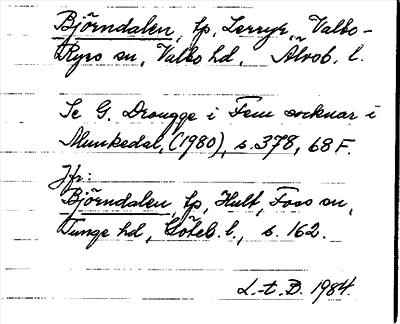 Björndalen, tp, Lerryr, Valbo-
Ryrs sn, Valbo hd, Älvsb. l.
Se G. Drougge i Fem socknar i
Munkedal, (1980), s. 378, 68 F.
Jfr:
Björndalen, tp, Hult, Foss sn,
Tunge hd, Göteb. l., s. 162.
L-t. B. 1984.